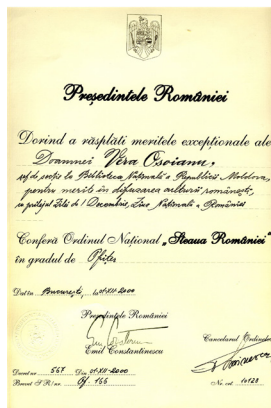 Președintele României
Dorind a răsplăti meritele excepționale ale
Doamnei Vera Osoianu,
șef de secție la Biblioteca Națională a Republicii Moldova,
pentru merite în difuzarea culturii românești,
cu prilejul Zilei de 1 Decembrie, Ziua Națională a României
Conferă Ordinul Național „Steaua României”
în gradul de Ofițer
Dat în București, la 01-XII-2000
Președintele României
Emil Constantinescu
Cancelarul Ordinelor
Decret nr. 567 Din 01-XII-2000
Brevet S.R/nr. Of. 166
No. crt. 10128